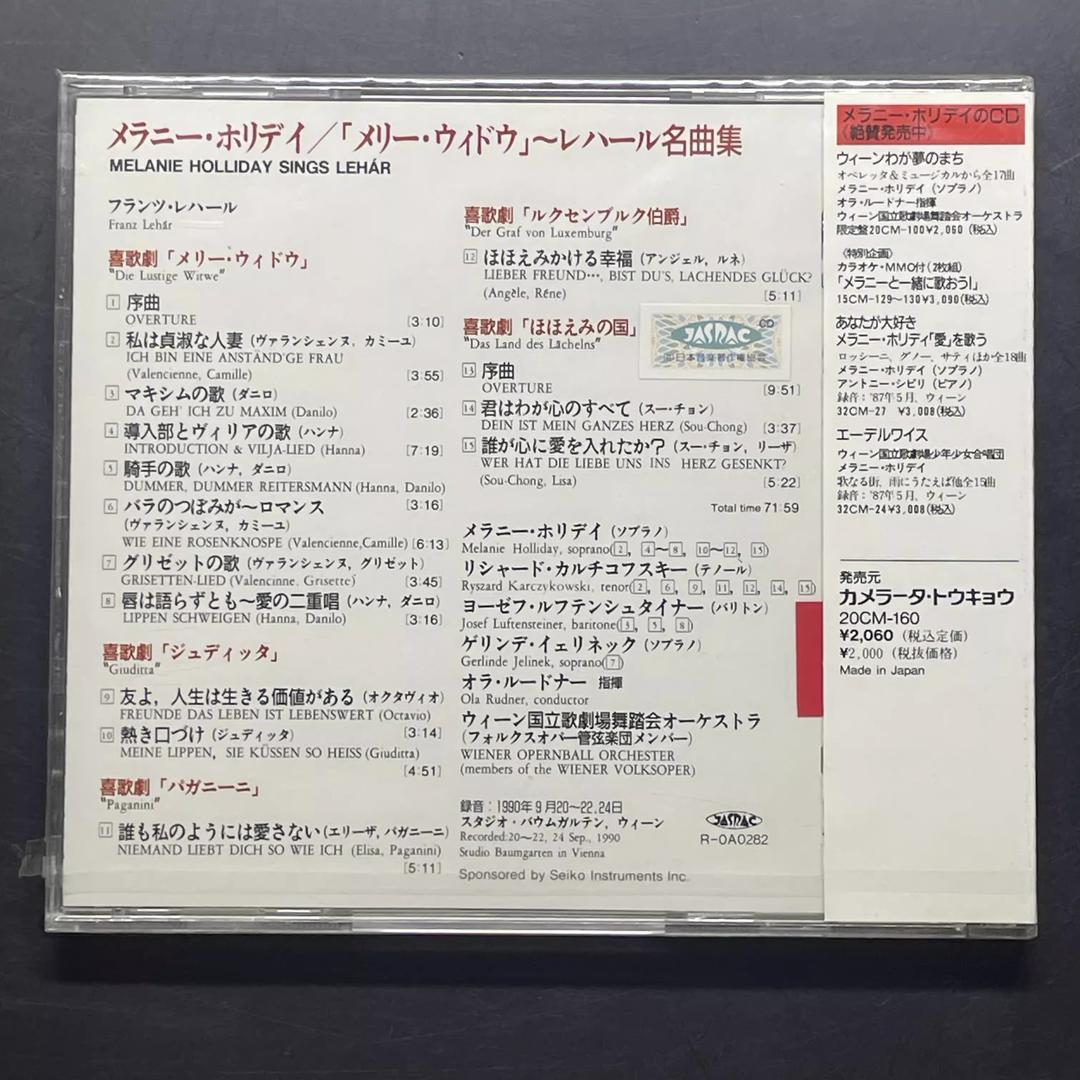 メラニー・ホリデイ／「メリー・ウィドウ」〜レハール名曲集
MELANIE HOLLIDAY SINGS LEHÁR
フランツ・レハール
Franz Lehár
喜歌劇「メリー・ウィドウ」
"Die Lustige Witwe"
1 序曲
OVERTURE [3:10]
2 私は貞淑な人妻 (ヴァランシェンヌ，カミーユ)
ICH BIN EINE ANSTÄND'GE FRAU
(Valencienne, Camille) [3:55]
3 マキシムの歌 (ダニロ)
DA GEH' ICH ZU MAXIM (Danilo) [2:36]
4 導入部とヴィリアの歌 (ハンナ)
INTRODUCTION & VILJA-LIED (Hanna) [7:19]
5 騎手の歌 (ハンナ，ダニロ)
DUMMER, DUMMER REITERSMANN (Hanna, Danilo)
[3:16]
6 バラのつぼみが〜ロマンス
(ヴァランシェンヌ，カミーユ)
WIE EINE ROSENKNOSPE (Valencienne,Camille) [6:13]
7 グリゼットの歌 (ヴァランシェンヌ，グリゼット)
GRISETTEN-LIED (Valencinne, Grisette) [3:45]
8 唇は語らずとも〜愛の二重唱 (ハンナ，ダニロ)
LIPPEN SCHWEIGEN (Hanna, Danilo) [3:16]
喜歌劇「ジュディッタ」
"Giuditta"
9 友よ，人生は生きる価値がある (オクタヴィオ)
FREUNDE DAS LEBEN IST LEBENSWERT (Octavio)
[3:14]
10 熱き口づけ (ジュディッタ)
MEINE LIPPEN, SIE KÜSSEN SO HEISS (Giuditta)
[4:51]
喜歌劇「パガニーニ」
"Paganini"
11 誰も私のようには愛さない (エリーザ，パガニーニ)
NIEMAND LIEBT DICH SO WIE ICH (Elisa, Paganini)
[5:11]
喜歌劇「ルクセンブルク伯爵」
"Der Graf von Luxemburg"
12 ほほえみかける幸福 (アンジェル，ルネ)
LIEBER FREUND…, BIST DU'S, LACHENDES GLÜCK?
(Angèle, Réne) [5:11]
喜歌劇「ほほえみの国」
"Das Land des Lächelns"
JASRAC CD
日本音楽著作権協会
13 序曲
OVERTURE [9:51]
14 君はわが心のすべて (スー・チョン)
DEIN IST MEIN GANZES HERZ (Sou-Chong) [3:37]
15 誰が心に愛を入れたか? (スー・チョン，リーザ)
WER HAT DIE LIEBE UNS INS HERZ GESENKT?
(Sou-Chong, Lisa) [5:22]
Total time 71:59
メラニー・ホリデイ (ソプラノ)
Melanie Holliday, soprano(2, 4〜8, 10〜12, 15)
リシャード・カルチコフスキー (テノール)
Ryszard Karczykowski, tenor(2, 6, 9, 11, 12, 14, 15)
ヨーゼフ・ルフテンシュタイナー (バリトン)
Josef Luftensteiner, baritone(3, 5, 8)
ゲリンデ・イェリネック (ソプラノ)
Gerlinde Jelinek, soprano(7)
オラ・ルードナー 指揮
Ola Rudner, conductor
ウィーン国立歌劇場舞踏会オーケストラ
(フォルクスオパー管弦楽団メンバー)
WIENER OPERNBALL ORCHESTER
(members of the WIENER VOLKSOPER)
録音：1990年9月20〜22,24日
スタジオ・バウムガルテン，ウィーン
Recorded:20〜22, 24 Sep., 1990
Studio Baumgarten in Vienna
Sponsored by Seiko Instruments Inc.
JASRAC
R-0A0282
メラニー・ホリデイのCD
(絶賛発売中)
ウィーンわが夢のまち
オペレッタ＆ミュージカルから全17曲
メラニー・ホリデイ (ソプラノ)
オラ・ルードナー指揮
ウィーン国立歌劇場舞踏会オーケストラ
限定盤20CM-100¥2,060 (税込)
〈特別企画〉
カラオケ・MMO付 (2枚組)
「メラニーと一緒に歌おう!」
15CM-129〜130¥3,090(税込)
あなたが大好き
メラニー・ホリデイ「愛」を歌う
ロッシーニ、グノー、サティほか全18曲
メラニー・ホリデイ (ソプラノ)
アントニー・シピリ (ピアノ)
録音：'87年5月、ウィーン
32CM-27 ¥3,008(税込)
エーデルワイス
ウィーン国立歌劇場少年少女合唱団
メラニー・ホリデイ
歌なる街、雨にうたえば他全15曲
録音：'87年5月、ウィーン
32CM-24¥3,008(税込)
発売元
カメラータ・トウキョウ
20CM-160
¥2,060 (税込定価)
¥2,000 (税抜価格)
Made in Japan